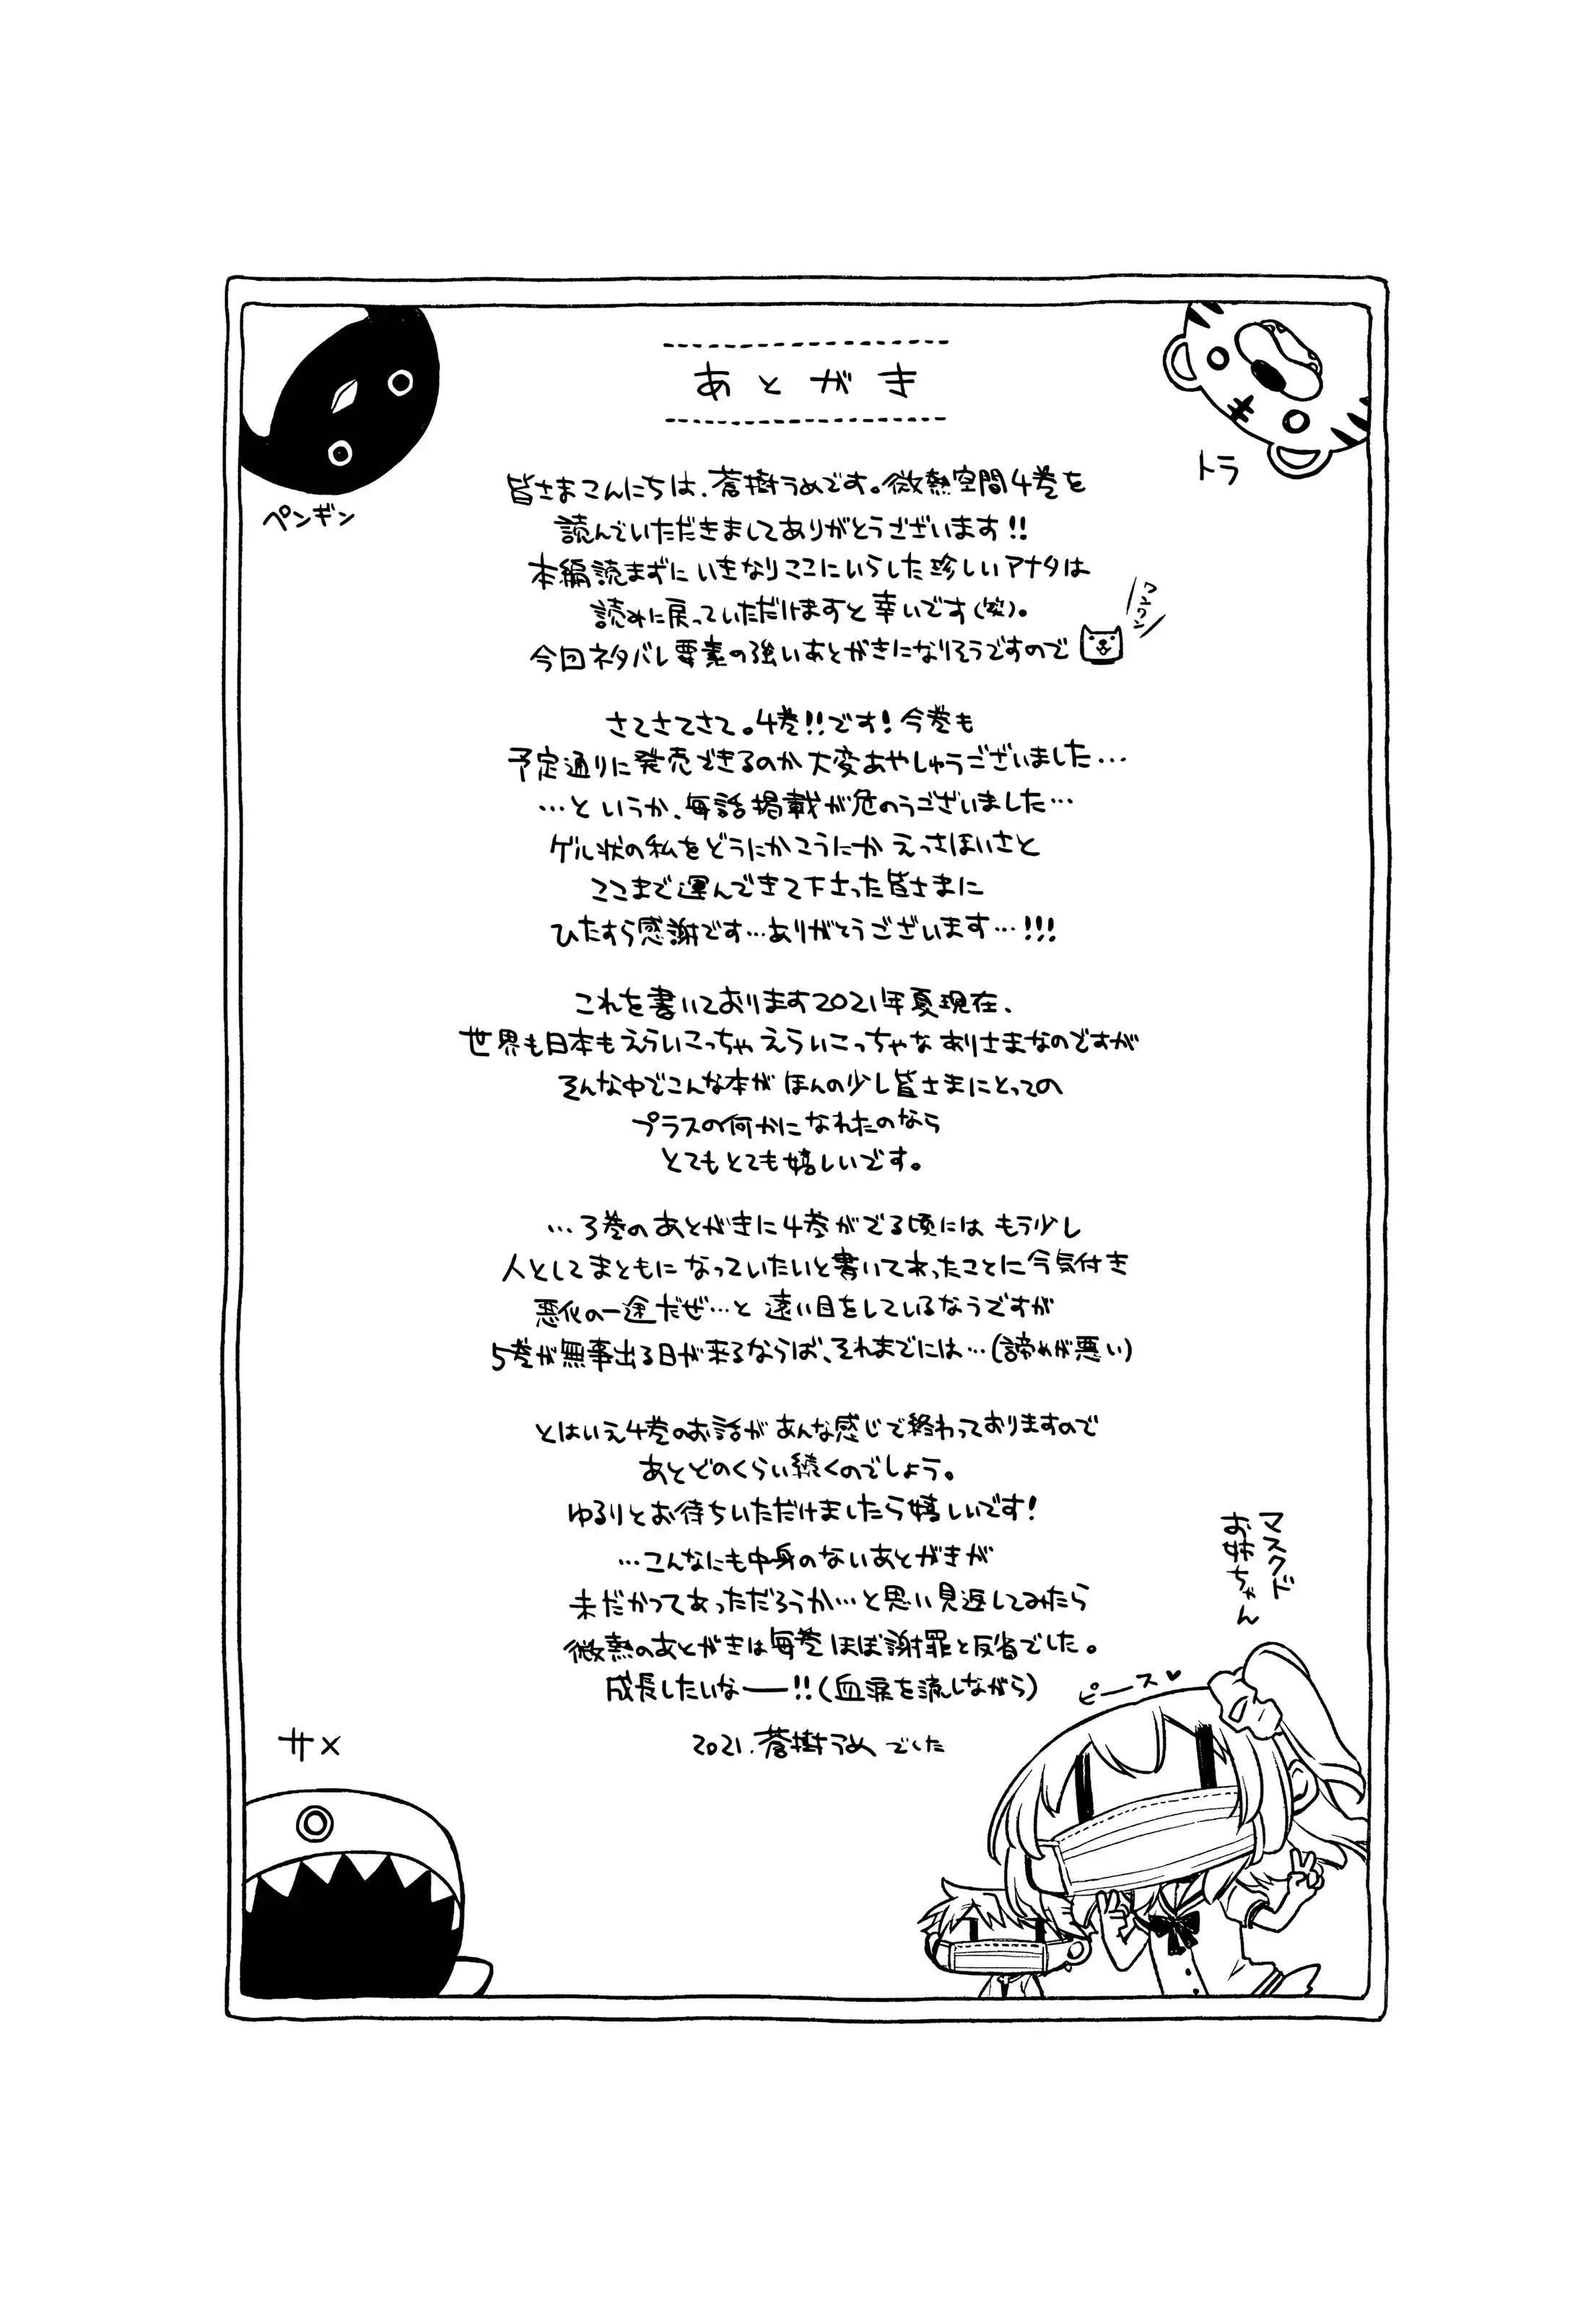 あとがき
ペンギン
トラ
皆さまこんにちは、蒼樹うめです。微熱空間4巻を
読んでいただきましてありがとうございます!!
本編読まずにいきなりここにいらした珍しいアナタは
読みに戻っていただけますと幸いです(笑)。
今回ネタバレ要素の強いあとがきになりそうですので
ワンワン
さてさてさて。4巻!!です!今巻も
予定通りに発売できるのか大変あやしゅうございました…
…というか、毎話掲載が危のうございました…
ゲル状の私をどうにかこうにか えっさほいさと
ここまで運んできて下さった皆さまに
ひたすら感謝です…ありがとうございます…!!!
これを書いております2021年夏現在、
世界も日本もえらいこっちゃえらいこっちゃなありさまなのですが
そんな中でこんな本が ほんの少し皆さまにとっての
プラスの何かになれたのなら
とてもとても嬉しいです。
…3巻のあとがきに4巻がでる頃には もう少し
人としてまともになっていたいと書いてあったことに今気付き
悪化の一途だぜ…と 遠い目をしているなうですが
5巻が無事出る日が来るならば、それまでには…(諦めが悪い)
とはいえ4巻のお話が あんな感じで終わっておりますので
あとどのくらい続くのでしょう。
ゆるりとお待ちいただけましたら嬉しいです!
…こんなにも中身のないあとがきが
未だかつてあっただろうか…と思い見返してみたら
微熱のあとがきは毎巻ほぼ謝罪と反省でした。
成長したいなー!!(血涙を流しながら)
2021.蒼樹うめ でした
マスクド
お姉ちゃん
ピース♥
サメ